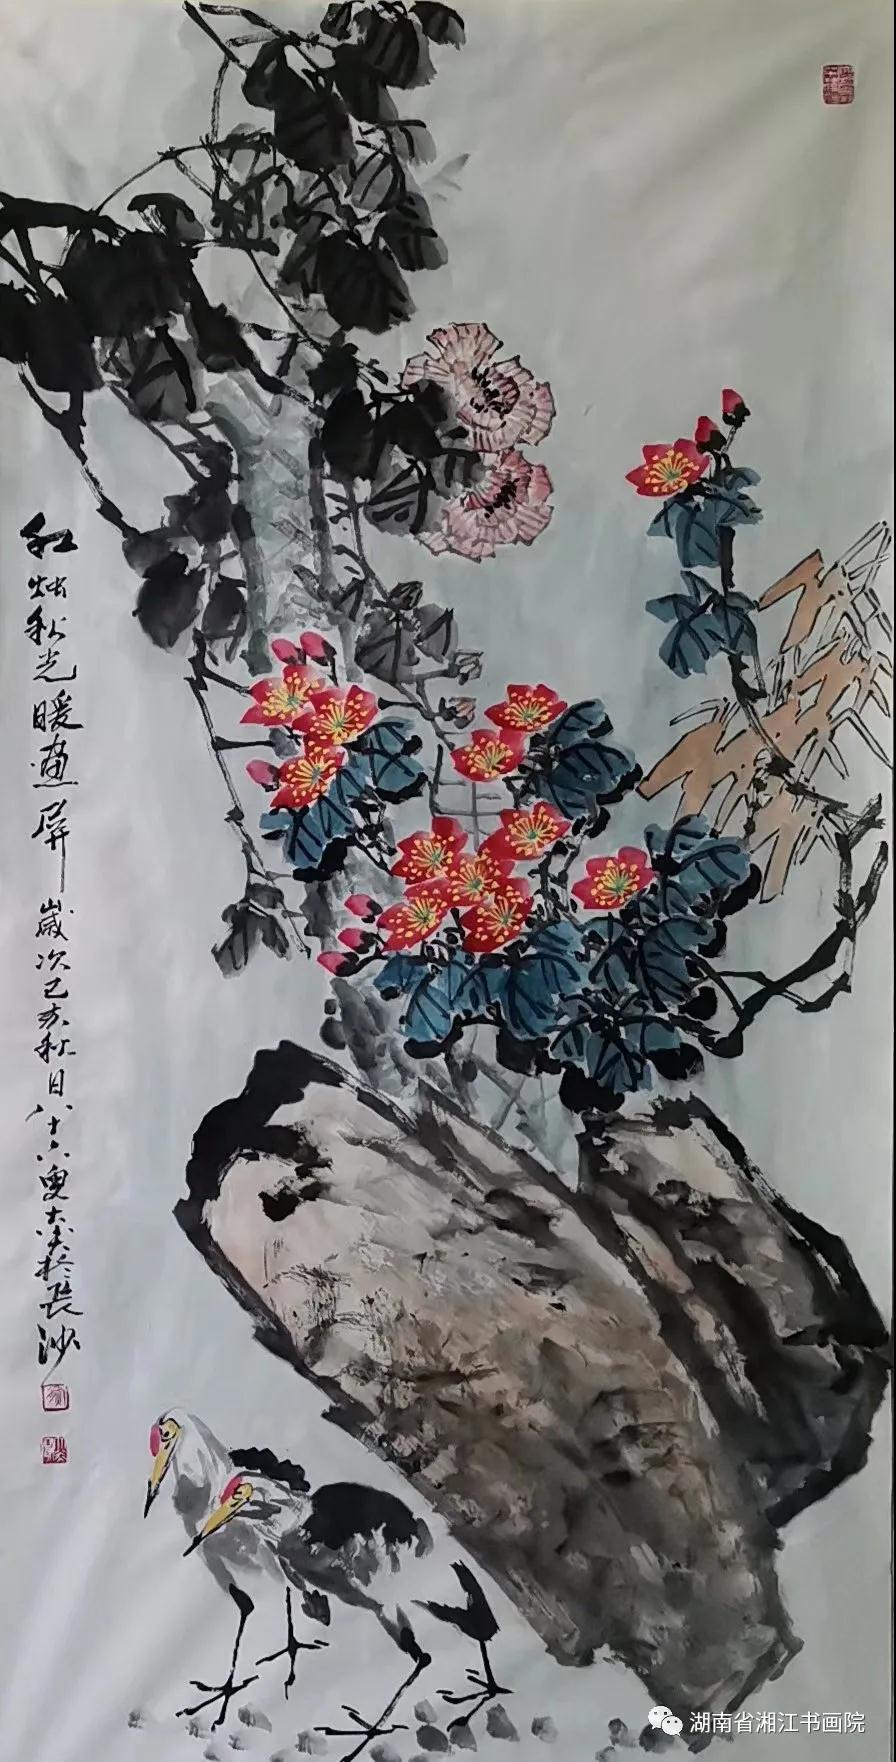 红烛秋光暖画屏
歲次己亥秋日八十六叟
长沙
湖南省湘江书画院